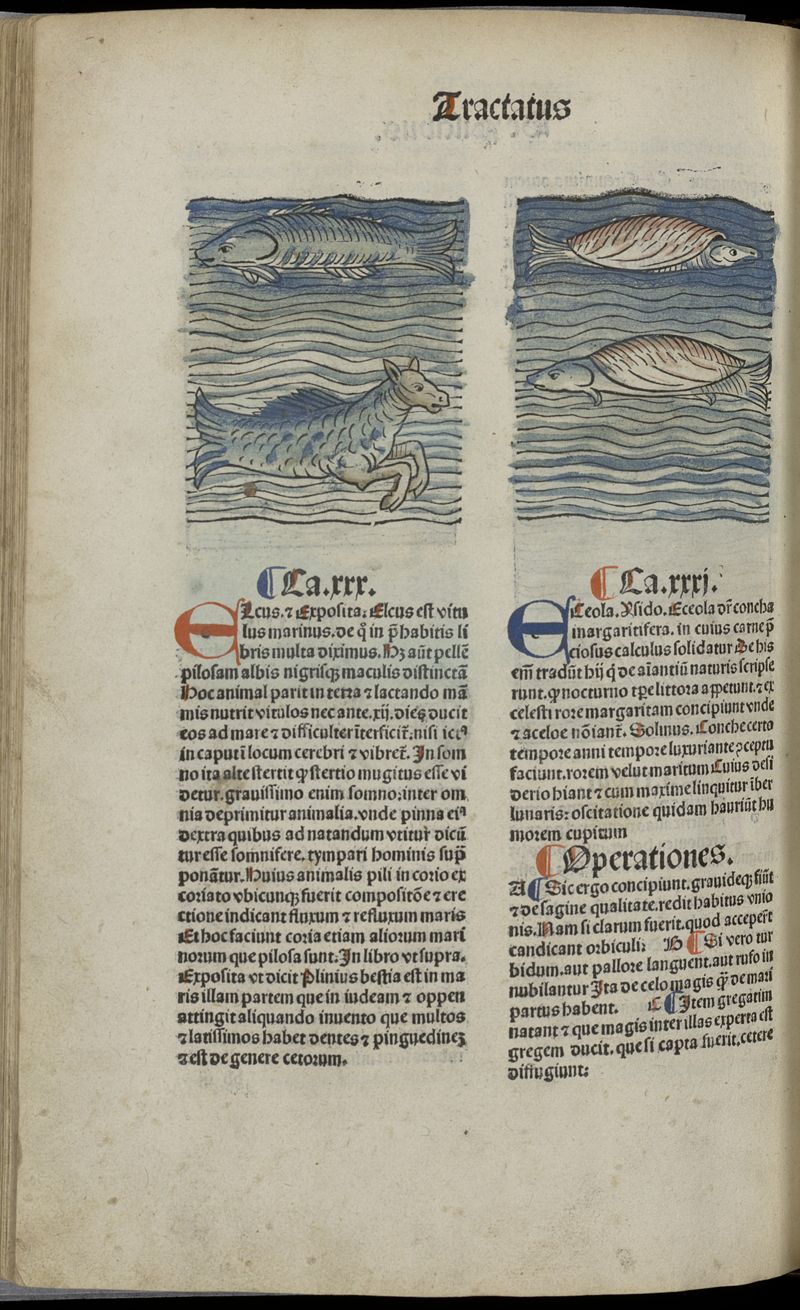 Tractatus
¶Ca.xxx.
ELcus.⁊ Exposita. Elcus est vitu
lus marinus.de q̊ in p̄habitis li
bris multa diximus. Hȝ aūt pellē
pilosam albis nigrisqȝ maculis distinctā
Hoc animal parit in terra ⁊ lactando mā
mis nutrit vitulos nec ante.xij.dieȝ ducit
eos ad mare ⁊ difficulter īterficit̄.nisi ictꝰ
in caput ī locum cerebri ⁊ vibret̄. In som
no ita alte stertit ꝙ stertio mugitus esse vi
detur.grauissimo enim somno:inter om
nia deprimitur animalia.vnde pinna eiꝰ
dextra quibus ad natandum vtitur dicū
tur esse somnifere.tympari hominis sup̄
ponātur.Huius animalis pili in corio ex
coriato vbicunqȝ fuerit compositōe ⁊ ere
ctione indicant fluxum ⁊ refluxum maris
Et hoc faciunt coria etiam aliorum mari
norum que pilosa sunt.In libro vt supra.
Exposita vt dicit Plinius bestia est in ma
ris illam partem que in iudeam ⁊ oppen
attingit aliquando inuento que multos
⁊ latissimos habet dentes ⁊ pinguedineȝ
⁊ est de genere cetorum.
¶Ca.xxxj.
ECeola. Ysido. Eceola dr̄ concha
margaritifera. in cuius carne p̄
ciosus calculus solidatur De his
em̄ tradūt hij q̇ de aīantiū naturis scripse
runt.ꝙ nocturno tp̄e littora appetunt.⁊ ex
celesti rore margaritam concipiunt vnde
⁊ aceloe nōiant̄. Solinus. Conche certo
tempore anni tempore luxuriante ꝯceptū
faciunt.rorem velut maritum Cuius desi
derio hiant ⁊ cum maxime linquitur īber
lunaris: oscitatione quidam hauriūt hu
morem cupitum
¶Operationes.
A ¶Sic ergo concipiunt.grauideqȝ fiūt
⁊ de sagine qualitate.redit habitus vnio
nis.Nam si clarum fuerit.quod acceperīt
candicant orbiculi: B ¶Si vero tur
bidum.aut pallore languent.aut rufo in
nubilantur Ita de celo magis q̄ȝ de mari
partus habent. C ¶Item gregatim
natant ⁊ que magis inter illas experta est
gregem ducit.que si capta fuerit.cetere
diffugiunt: